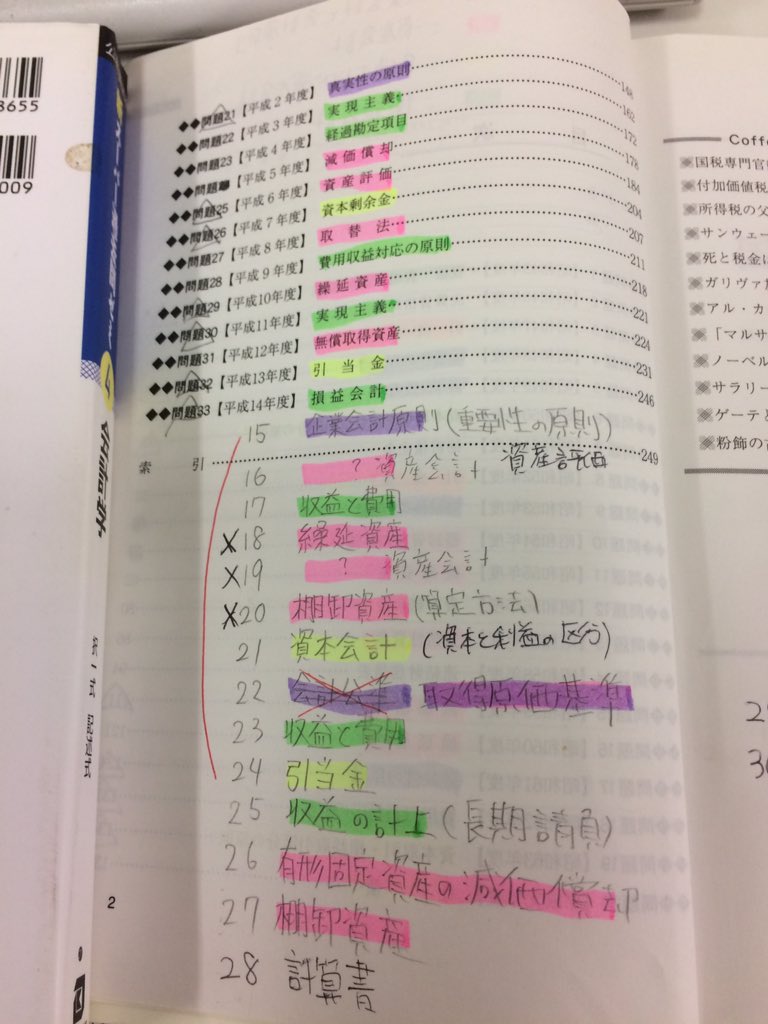 8655
009
◆◆問題21【平成2年度】 真実性の原則 148
◆◆問題22【平成3年度】 実現主義 162
◆◆問題23【平成4年度】 経過勘定項目 172
◆◆問題 【平成5年度】 減価償却 178
◆◆問題25【平成6年度】 資産評価 184
◆◆問題26【平成7年度】 資本剰余金 204
◆◆問題27【平成8年度】 取替法 207
◆◆問題28【平成9年度】 費用収益対応の原則 211
◆◆問題29【平成10年度】 繰延資産 218
◆◆問題30【平成11年度】 実現主義 221
◆◆問題31【平成12年度】 無償取得資産 224
◆◆問題32【平成13年度】 引当金 231
◆◆問題33【平成14年度】 損益会計 246
15 企業会計原則(重要性の原則)
索引 249
16 ? 資産会計 資産評価
17 収益と費用
×18 繰延資産
×19 ? 資産会計
×20 棚卸資産(算定方法)
21 資本会計 (資本と利益の区分)
22 会計公準 取得原価基準
23 収益と費用
24 引当金
25 収益の計上(長期請負)
26 有形固定資産の減価償却
27 棚卸資産
28 計算書
2
Coff
※国税専門官
※付加価値税
※所得税の父
※サンウェー
※死と税金に
※ガリヴァ
※アル・カ
※「マルサ
※ノーベル
※サラリー
※ゲーテと
※粉飾の